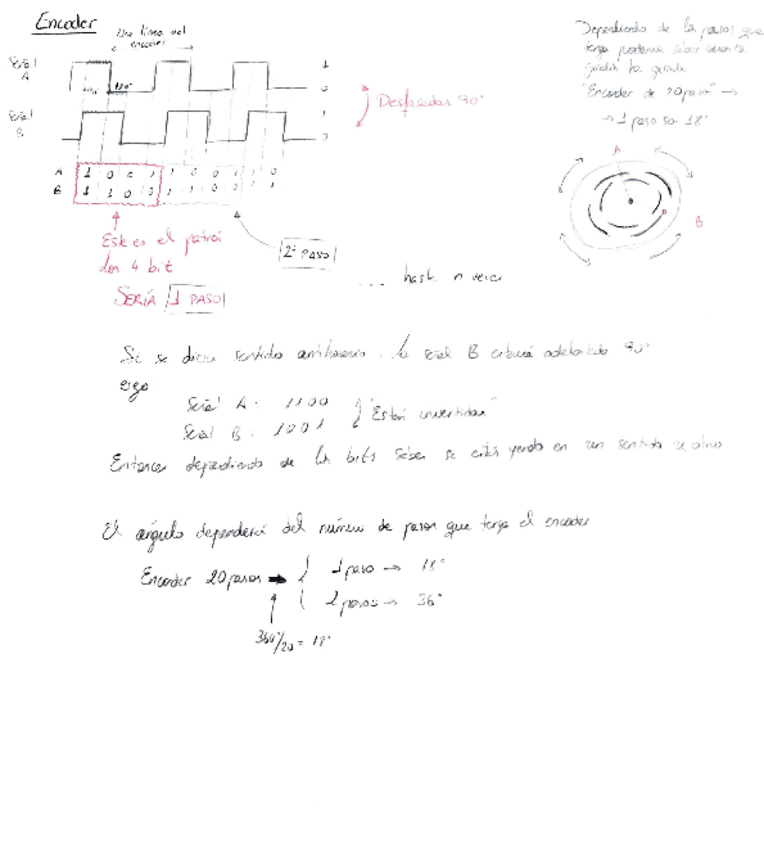 Encoder
Una línea del
encoder
Señal
A
1
0
180°
Señal
B
Desfasadas 90°
A 1 0 0 1 1 0 0 1 1 0
B 1 1 0 0 1 1 0 0 1 1
Este es el patrón
los 4 bit
SERÍA 1 PASO
2º PASO
... hasta n veces
Dependiendo de los pasos que
tenga podemos saber cuanto
grados ha girado
"Encoder de 20 pasos" →
→ 1 paso son 18°
A
B
Si se diera sentido antihorario. la señal B estará adelantado 90°
ergo
Señal A: 1100
Señal B: 1001
"Están invertidas"
Entonces dependiendo de los bits sabes se estás yendo en un sentido u otro
El ángulo dependerá del número de pasos que tenga el encoder
Encoder 20 pasos → 1 paso → 18°
2 pasos → 36°
360°/20 = 18°